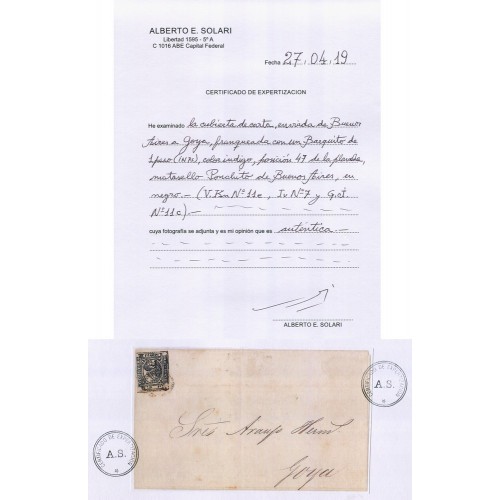 ALBERTO E. SOLARI
Libertad 1595 - 5º A
C 1016 ABE Capital Federal
Fecha 27.04.19
CERTIFICADO DE EXPERTIZACION
He examinado la cubierta de carta, enviada de Buenos
Aires a Goya, franqueada con un Barquito de
1 peso (IN PS), color indigo, posición 47 de la plancha,
matasello Ponchito de Buenos Aires, en
negro.- (V. Kn Nº 11e, Iv Nº 7 y G.J.
Nº 11c).-
cuya fotografía se adjunta y es mi opinión que es auténtica.-
ALBERTO E. SOLARI
CERTIFICADO DE EXPERTIZACION
A.S.
Sres Araujo Herms
Goya
CERTIFICADO DE EXPERTIZACION
A.S.